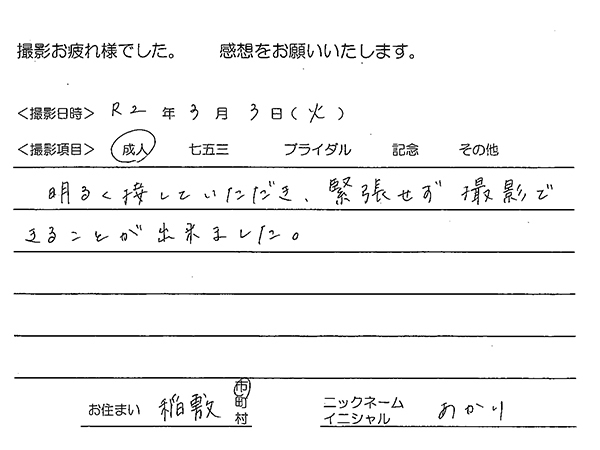 撮影お疲れ様でした。 感想をお願いいたします。
＜撮影日時＞ R2 年 3 月 3 日(火)
＜撮影項目＞ 成人 七五三 ブライダル 記念 その他
明るく接していただき、緊張せず撮影で
きることが出来ました。
お住まい 稲敷 市町村 ニックネーム イニシャル あかり